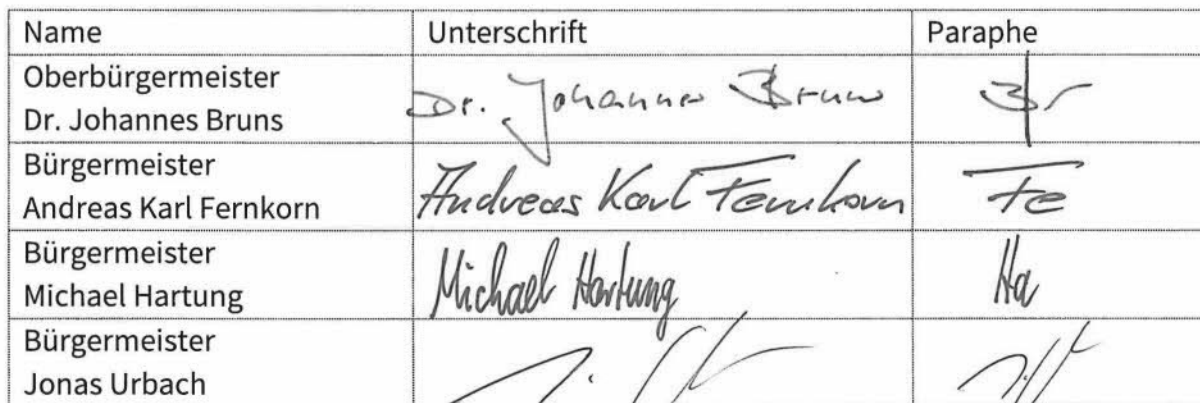 Name Unterschrift Paraphe
Oberbürgermeister
Dr. Johannes Bruns Dr. Johannes Bruns Br
Bürgermeister
Andreas Karl Fernkorn Andreas Karl Fernkorn Fe
Bürgermeister
Michael Hartung Michael Hartung Ha
Bürgermeister
Jonas Urbach